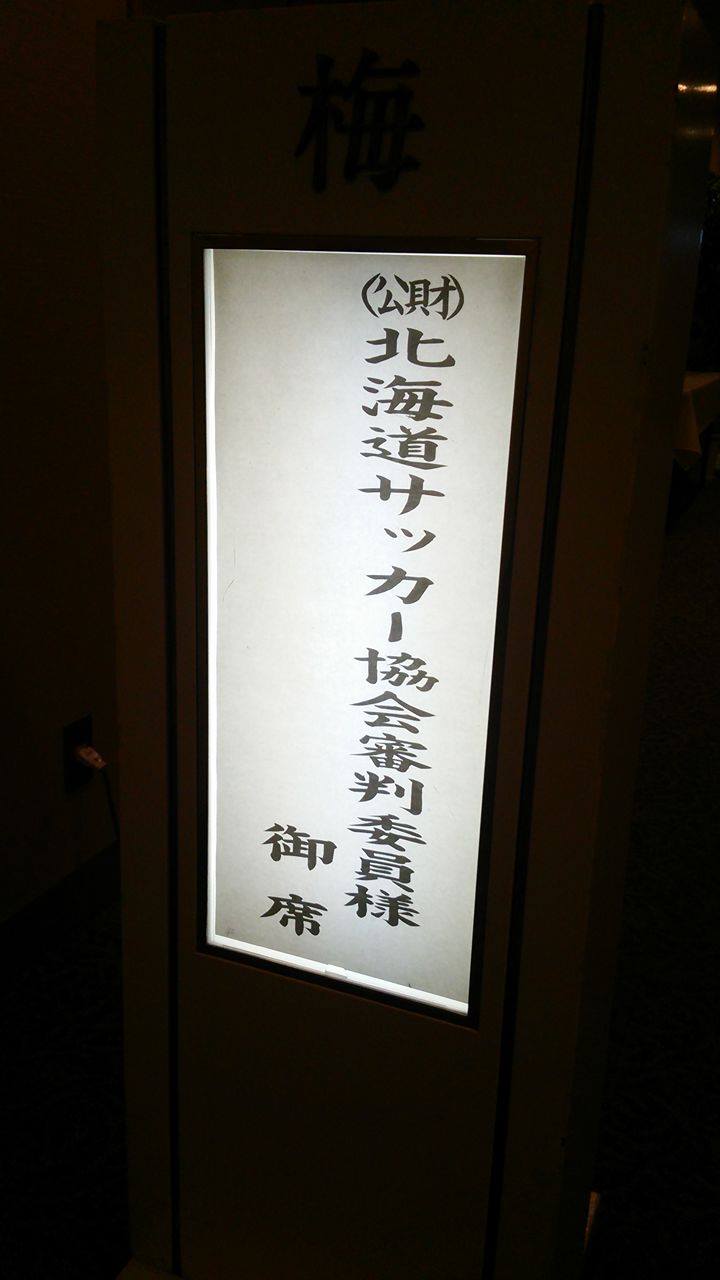 梅
(公財)北海道サッカー協会審判委員様
御席